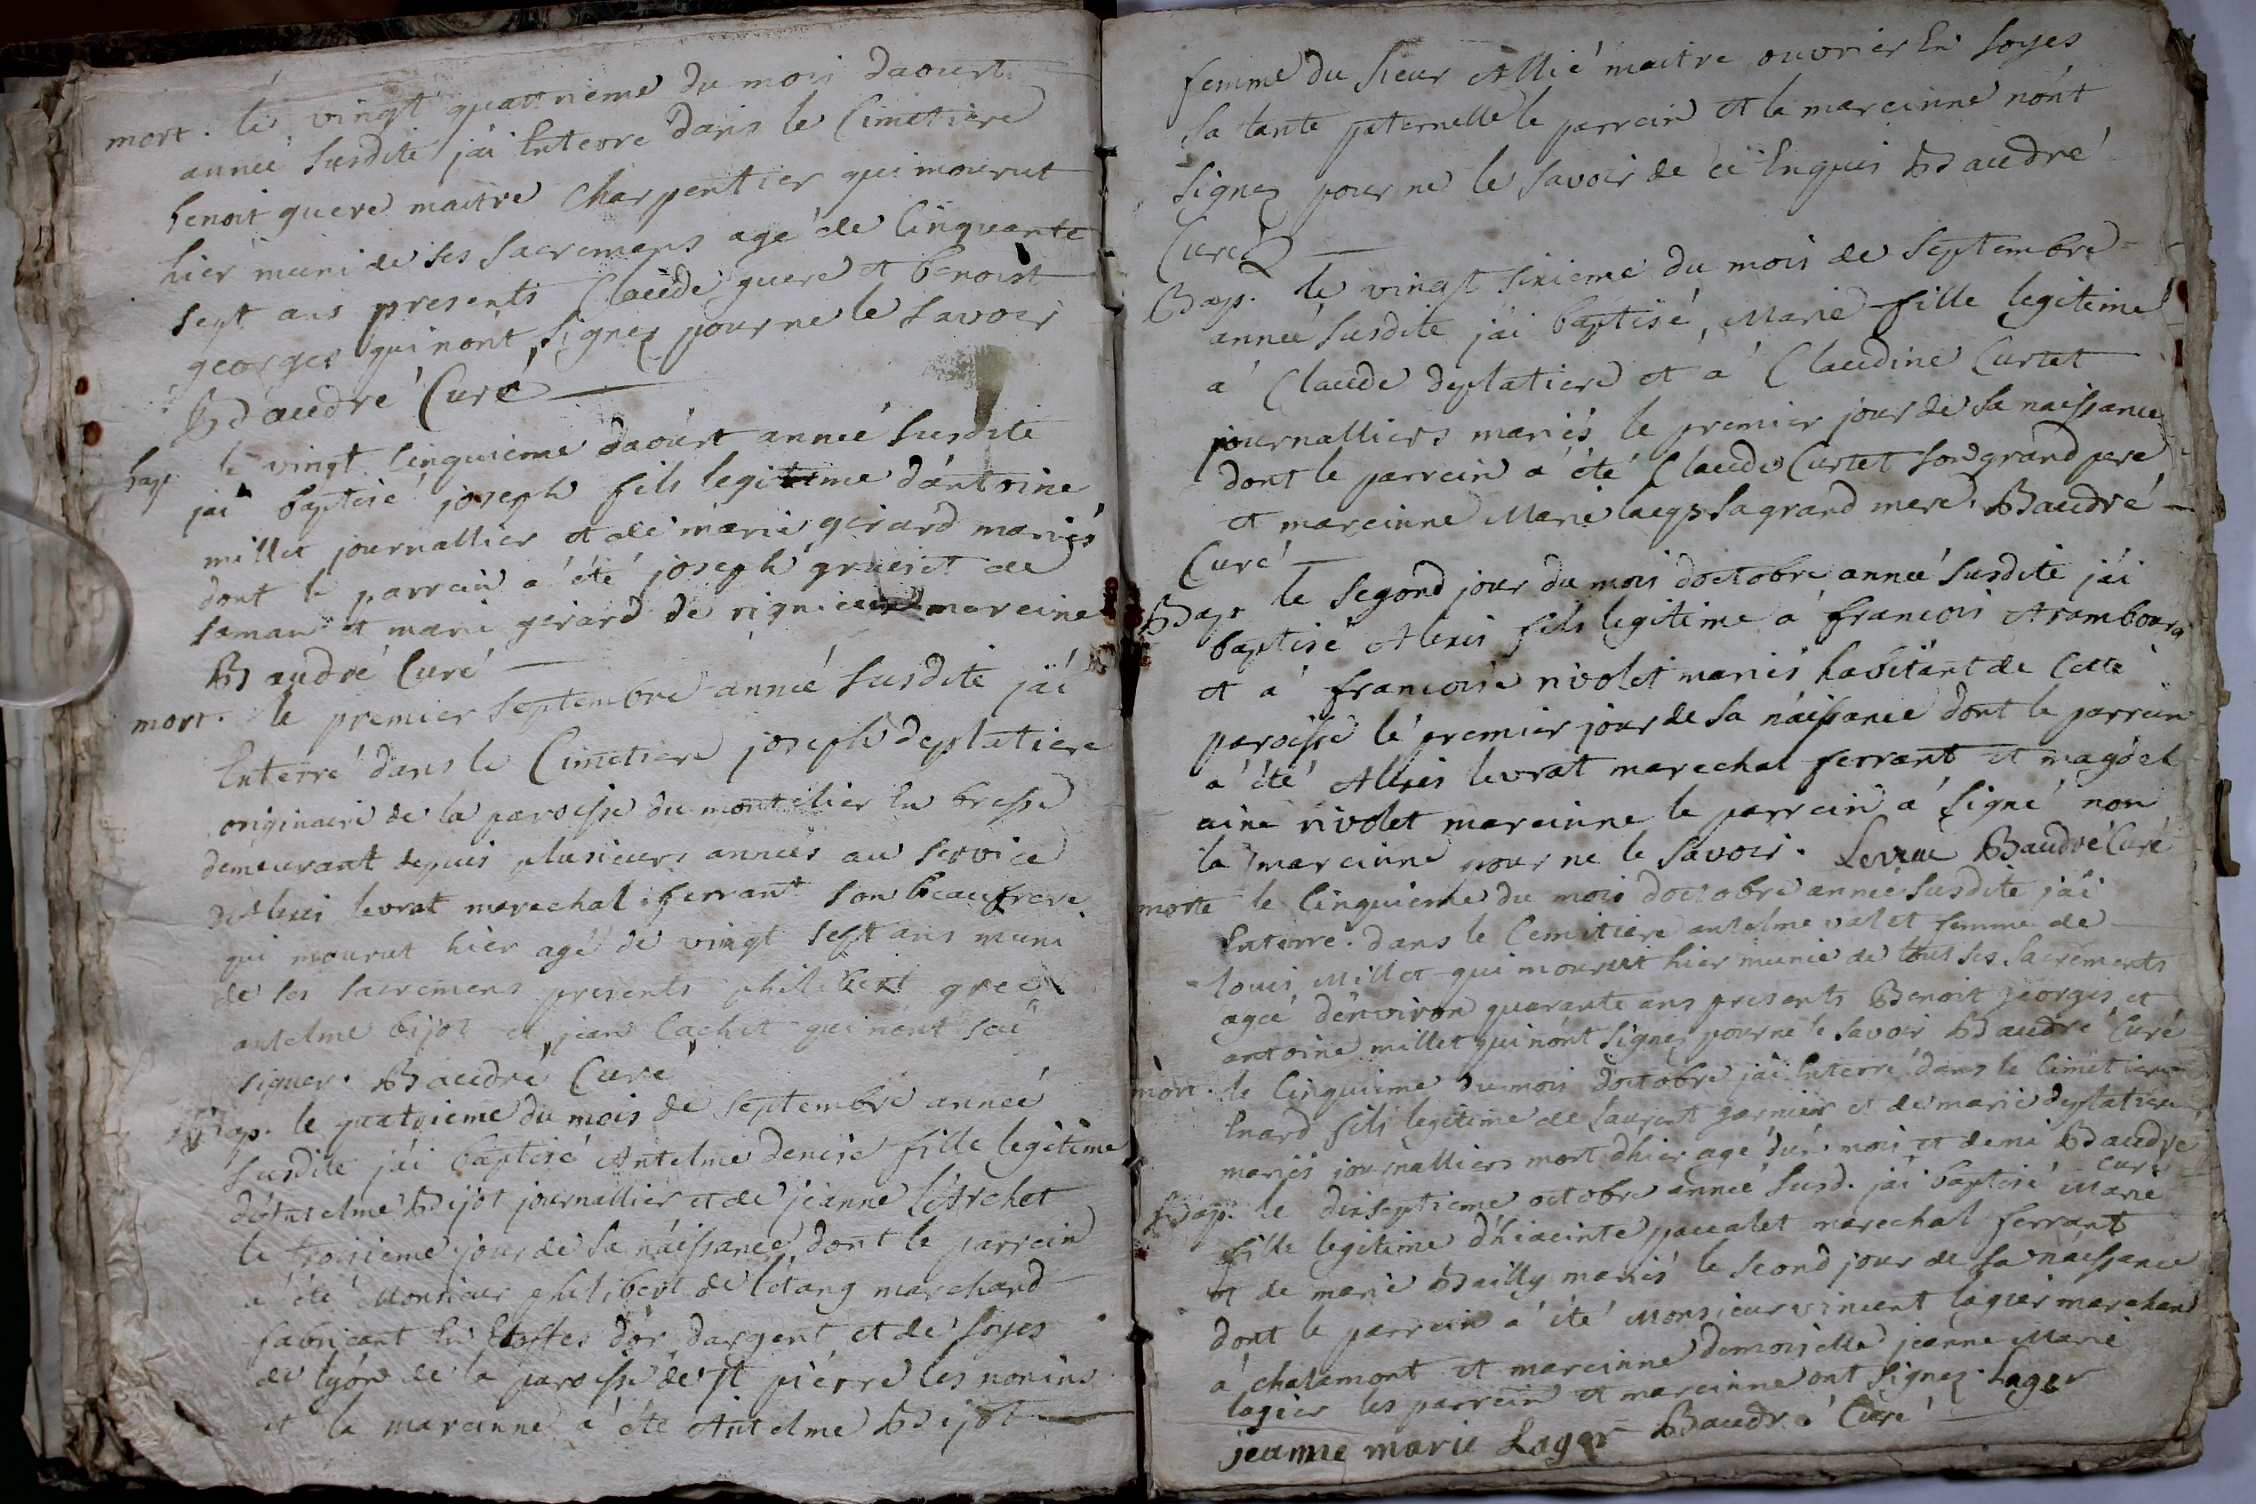 mort. le vingt quattrieme du mois daoust
année susdite jai Enterré dans le Cimetiere
benoit guere maitre Charpentier qui mourut
hier muni de ses sacremens agé de Cinquante
sept ans presents Claude guere et benoist
georges qui nont signez pour ne le savoir
Baudré Curé
bap. le vingt Cinquieme daoust année susdite
jai baptisé joseph fils legitime dántoine
millet journallier et de marie girard mariés
dont le parrein a été joseph gruiset de
et marie girard de rignieux mareine
Baudré Curé
mort. le premier septembre année susdite jái
Enterré dans le Cimetiere joseph deplatiere
originaire de la paroisse du montelier En bresse
demeurant depuis plusieurs années au service
dAlexis levrat marechal ferrant son beaufrere
qui mourut hier agé de vingt sept ans muni
de ses sacremens presents philibert gree
antelme bijot et jean Cachet qui nont sçu
signer. Baudré Curé
Bap. le quatrieme du mois de septembre année
susdite jái baptisé Antelme denise fille legitime
dántelme Bijot journallier et de jeanne LéArchet
le troisieme jour de sa náissance dont le parrein
a été Monsieur philibert de létang marchand
fabricant En Etoffes dór, dargent et de soyes
de lyón de la paroisse de St piérre les nonins
et la mareinne a éte Antelme Bijot
femme du sieur Allié maitre ouvrier En soyes
sa tante paternelle le parrein et la mareinne nónt
signez pour ne le savoir de ce Enquis Baudré
Curé
Bap. le vingt sixieme du mois de septembre
année susdite jái baptisé, Marie fille legitime
a Claude deplatiere et a Claudine Curtet
journalliers mariés le premier jour de sa naissance
dont le parrein a été Claude Curtet son grand pere
et mareinne Marie sa grand mere. Baudré
Curé
Bap. le segond jour du mois doctobre année susdite jái
baptisé Alexis fils legitime a francois Arambourg
et a francoise rivolet mariés habitánt de Cette
paroisse lé premier jour de sa náissance dont le parrein
a été Allexis levrat marechal ferrant et magdel
aine rivolet mareinne le parrein a signé non
la mareinne pour ne le savoir. Baudré Curé
morte le Cinquieme du mois doctobre année susdite jái
Enterré dans le Cemitiere antelme valet femme de
louis Millet qui mourut hier munie de tous ses sacrements
agée dénviron quarante ans presents Benoit georges et
antoine millet qui nónt signez pour ne le savoir Baudré Curé
mort. le Cinquieme du mois doctobre jai Enterré dans le Cimetiere
Enard fils legitime de laurent garnier et de marie deplatiere
mariés journalliers mort dhier agé dún mois et demi Baudré
Curé
Bap. le dixseptieme octobre année susd. jái baptisé Marie
fille legitime dhiacinte paccalet marechal ferrant
et de marie Bailly mariés le second jour de sa naissance
dont le parrein a été Monsieur vincent lagier marchand
á chalamont et mareinne demoiselle jeanne Marie
lagier les parrein et mareinne ont signez. Lager
jeanne marie Lager Baudré Curé